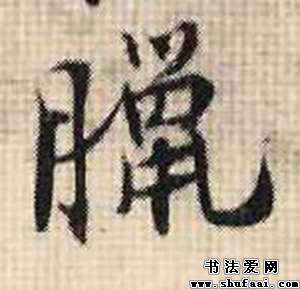 臘
书法爱网
www.shufaai.com